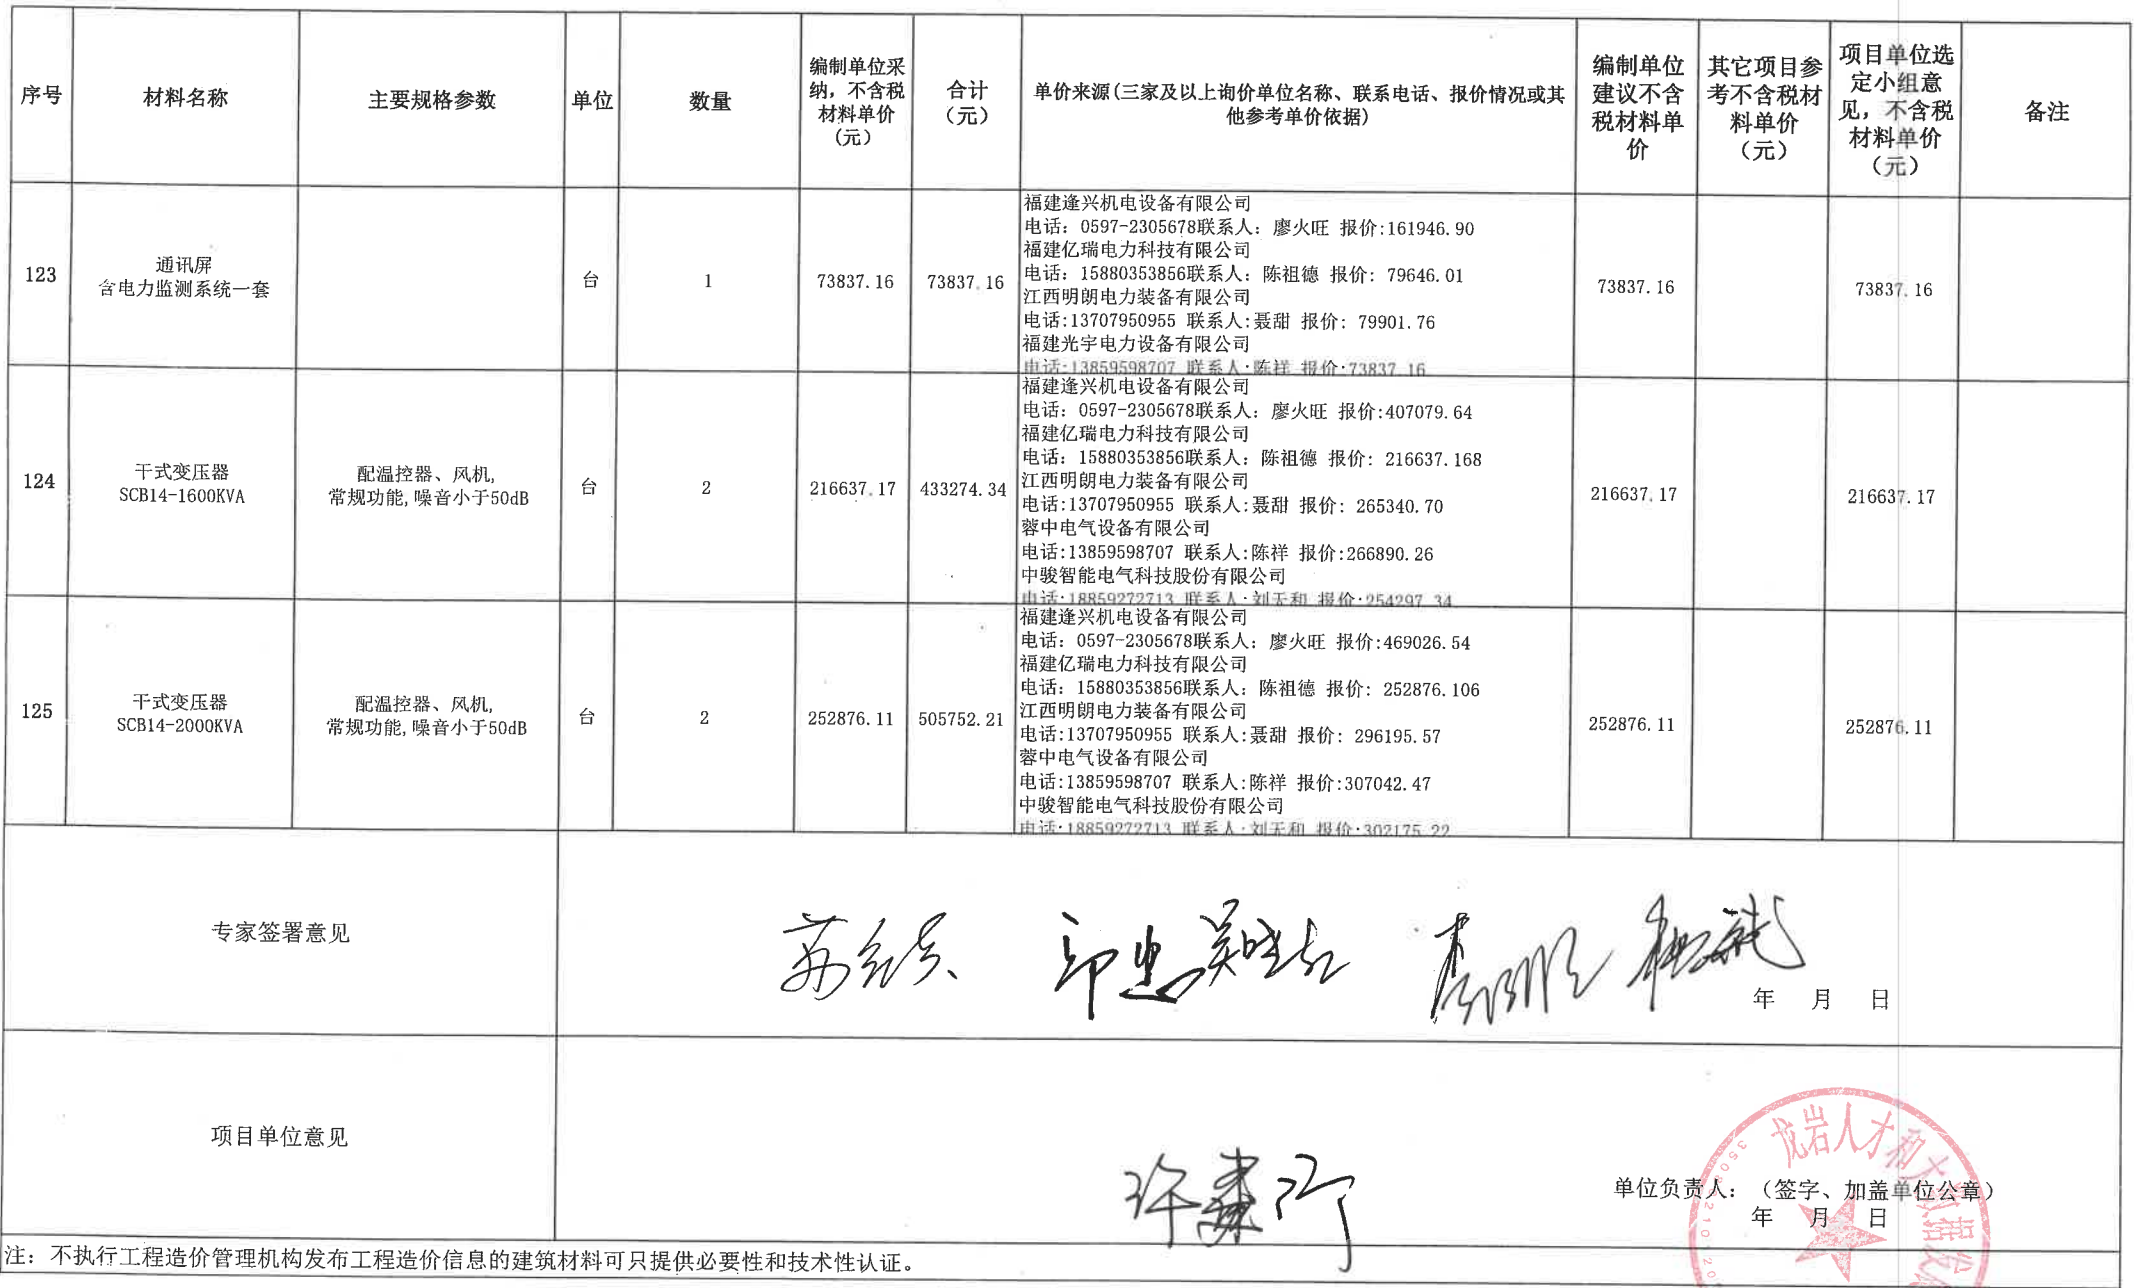 序号
材料名称
主要规格参数
单位
数量
编制单位采
纳，不含税
材料单价
(元)
合计
（元）
单价来源(三家及以上询价单位名称、联系电话、报价情况或其
他参考单价依据)
编制单位
建议不含
税材料单
价
其它项目参
考不含税材
料单价
（元）
项目单位选
定小组意
见，不含税
材料单价
（元）
备注
123
通讯屏
含电力监测系统一套
台
1
73837.16
73837.16
福建逢兴机电设备有限公司
电话：0597-2305678联系人：廖火旺 报价:161946.90
福建亿瑞电力科技有限公司
电话：15880353856联系人：陈祖德 报价：79646.01
江西明朗电力装备有限公司
电话:13707950955 联系人:聂甜 报价：79901.76
福建光宇电力设备有限公司
电话:13859598707 联系人:陈祥 报价:73837.16
73837.16
73837.16
124
干式变压器
SCB14-1600KVA
配温控器、风机,
常规功能,噪音小于50dB
台
2
216637.17
433274.34
福建逢兴机电设备有限公司
电话：0597-2305678联系人：廖火旺 报价:407079.64
福建亿瑞电力科技有限公司
电话：15880353856联系人：陈祖德 报价：216637.168
江西明朗电力装备有限公司
电话:13707950955 联系人:聂甜 报价：265340.70
蓉中电气设备有限公司
电话:13859598707 联系人:陈祥 报价:266890.26
中骏智能电气科技股份有限公司
电话:18859272713 联系人:刘天和 报价:254297.34
216637.17
216637.17
125
干式变压器
SCB14-2000KVA
配温控器、风机,
常规功能,噪音小于50dB
台
2
252876.11
505752.21
福建逢兴机电设备有限公司
电话：0597-2305678联系人：廖火旺 报价:469026.54
福建亿瑞电力科技有限公司
电话：15880353856联系人：陈祖德 报价：252876.106
江西明朗电力装备有限公司
电话:13707950955 联系人:聂甜 报价：296195.57
蓉中电气设备有限公司
电话:13859598707 联系人:陈祥 报价:307042.47
中骏智能电气科技股份有限公司
电话:18859272713 联系人:刘天和 报价:302175.22
252876.11
252876.11
专家签署意见
年 月 日
项目单位意见
龙岩人才和大数据发
单位负责人：（签字、加盖单位公章）
年 月 日
注：不执行工程造价管理机构发布工程造价信息的建筑材料可只提供必要性和技术性认证。